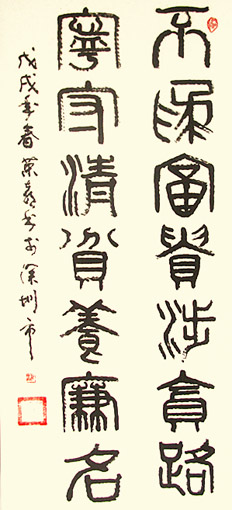 不富貴涉貪路
寧守清貧養廉名
戊戌年春书於深圳市